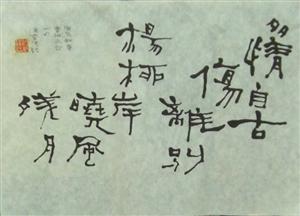 多情自古
傷離別
楊柳岸
曉風
殘月